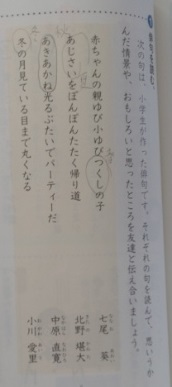 俳句を読む
次の句は、小学生が作った俳句です。それぞれの句を読んで、思いうか
んだ情景や、おもしろいと思ったところを友達と伝え合いましょう。
赤ちゃんの親ゆび小ゆびつくしの子
七尾 葵
あじさいをぽんぽんたたく帰り道
北野 堪大
あきあかね光るぶたいでパーティーだ
中原 直寛
冬の月見ている目まで丸くなる
小川 愛里